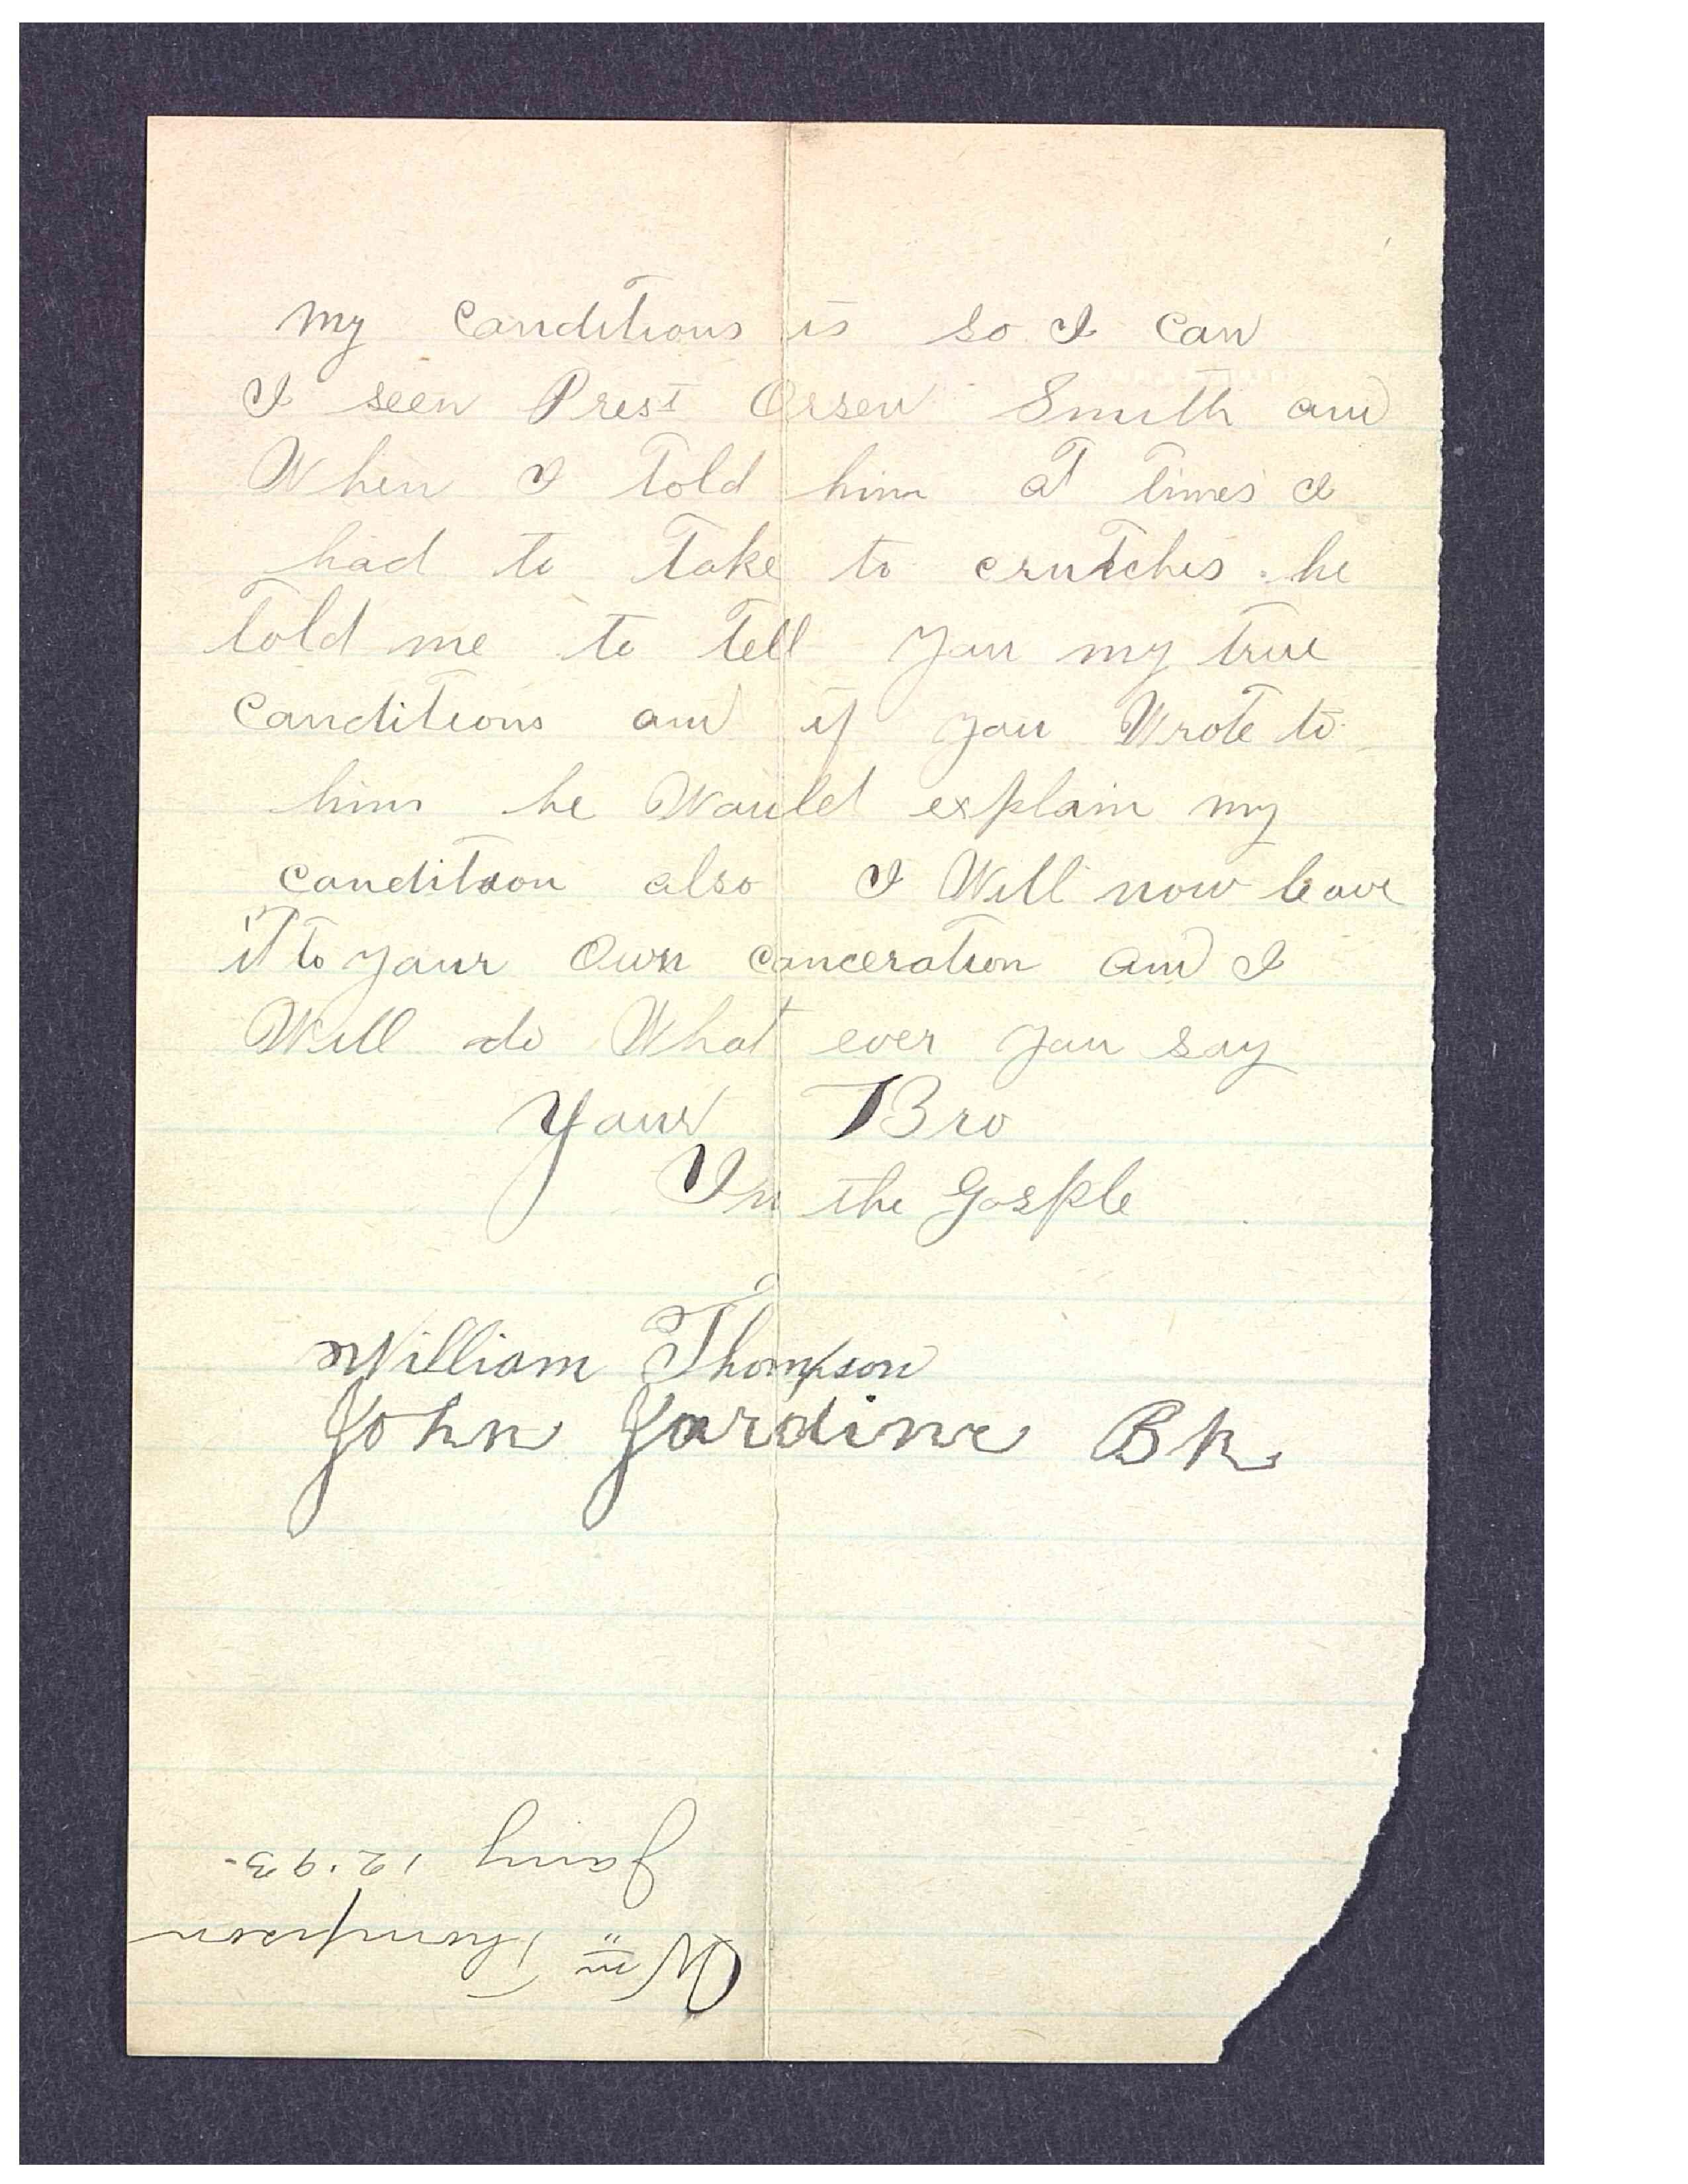 my conditions is so I can
I seen Prest Orsen Smith and
When I told him at times I
had to take to crutches. he
told me to tell you my true
conditions and if you Wrote to
him he Would explain my
condition also I Will now leave
it to your Own conceration and I
Will do What ever you say
Your Bro
In the Gosple
William Thompson
John Jardine Bk
Wm Thompson
Jany 12. 93.